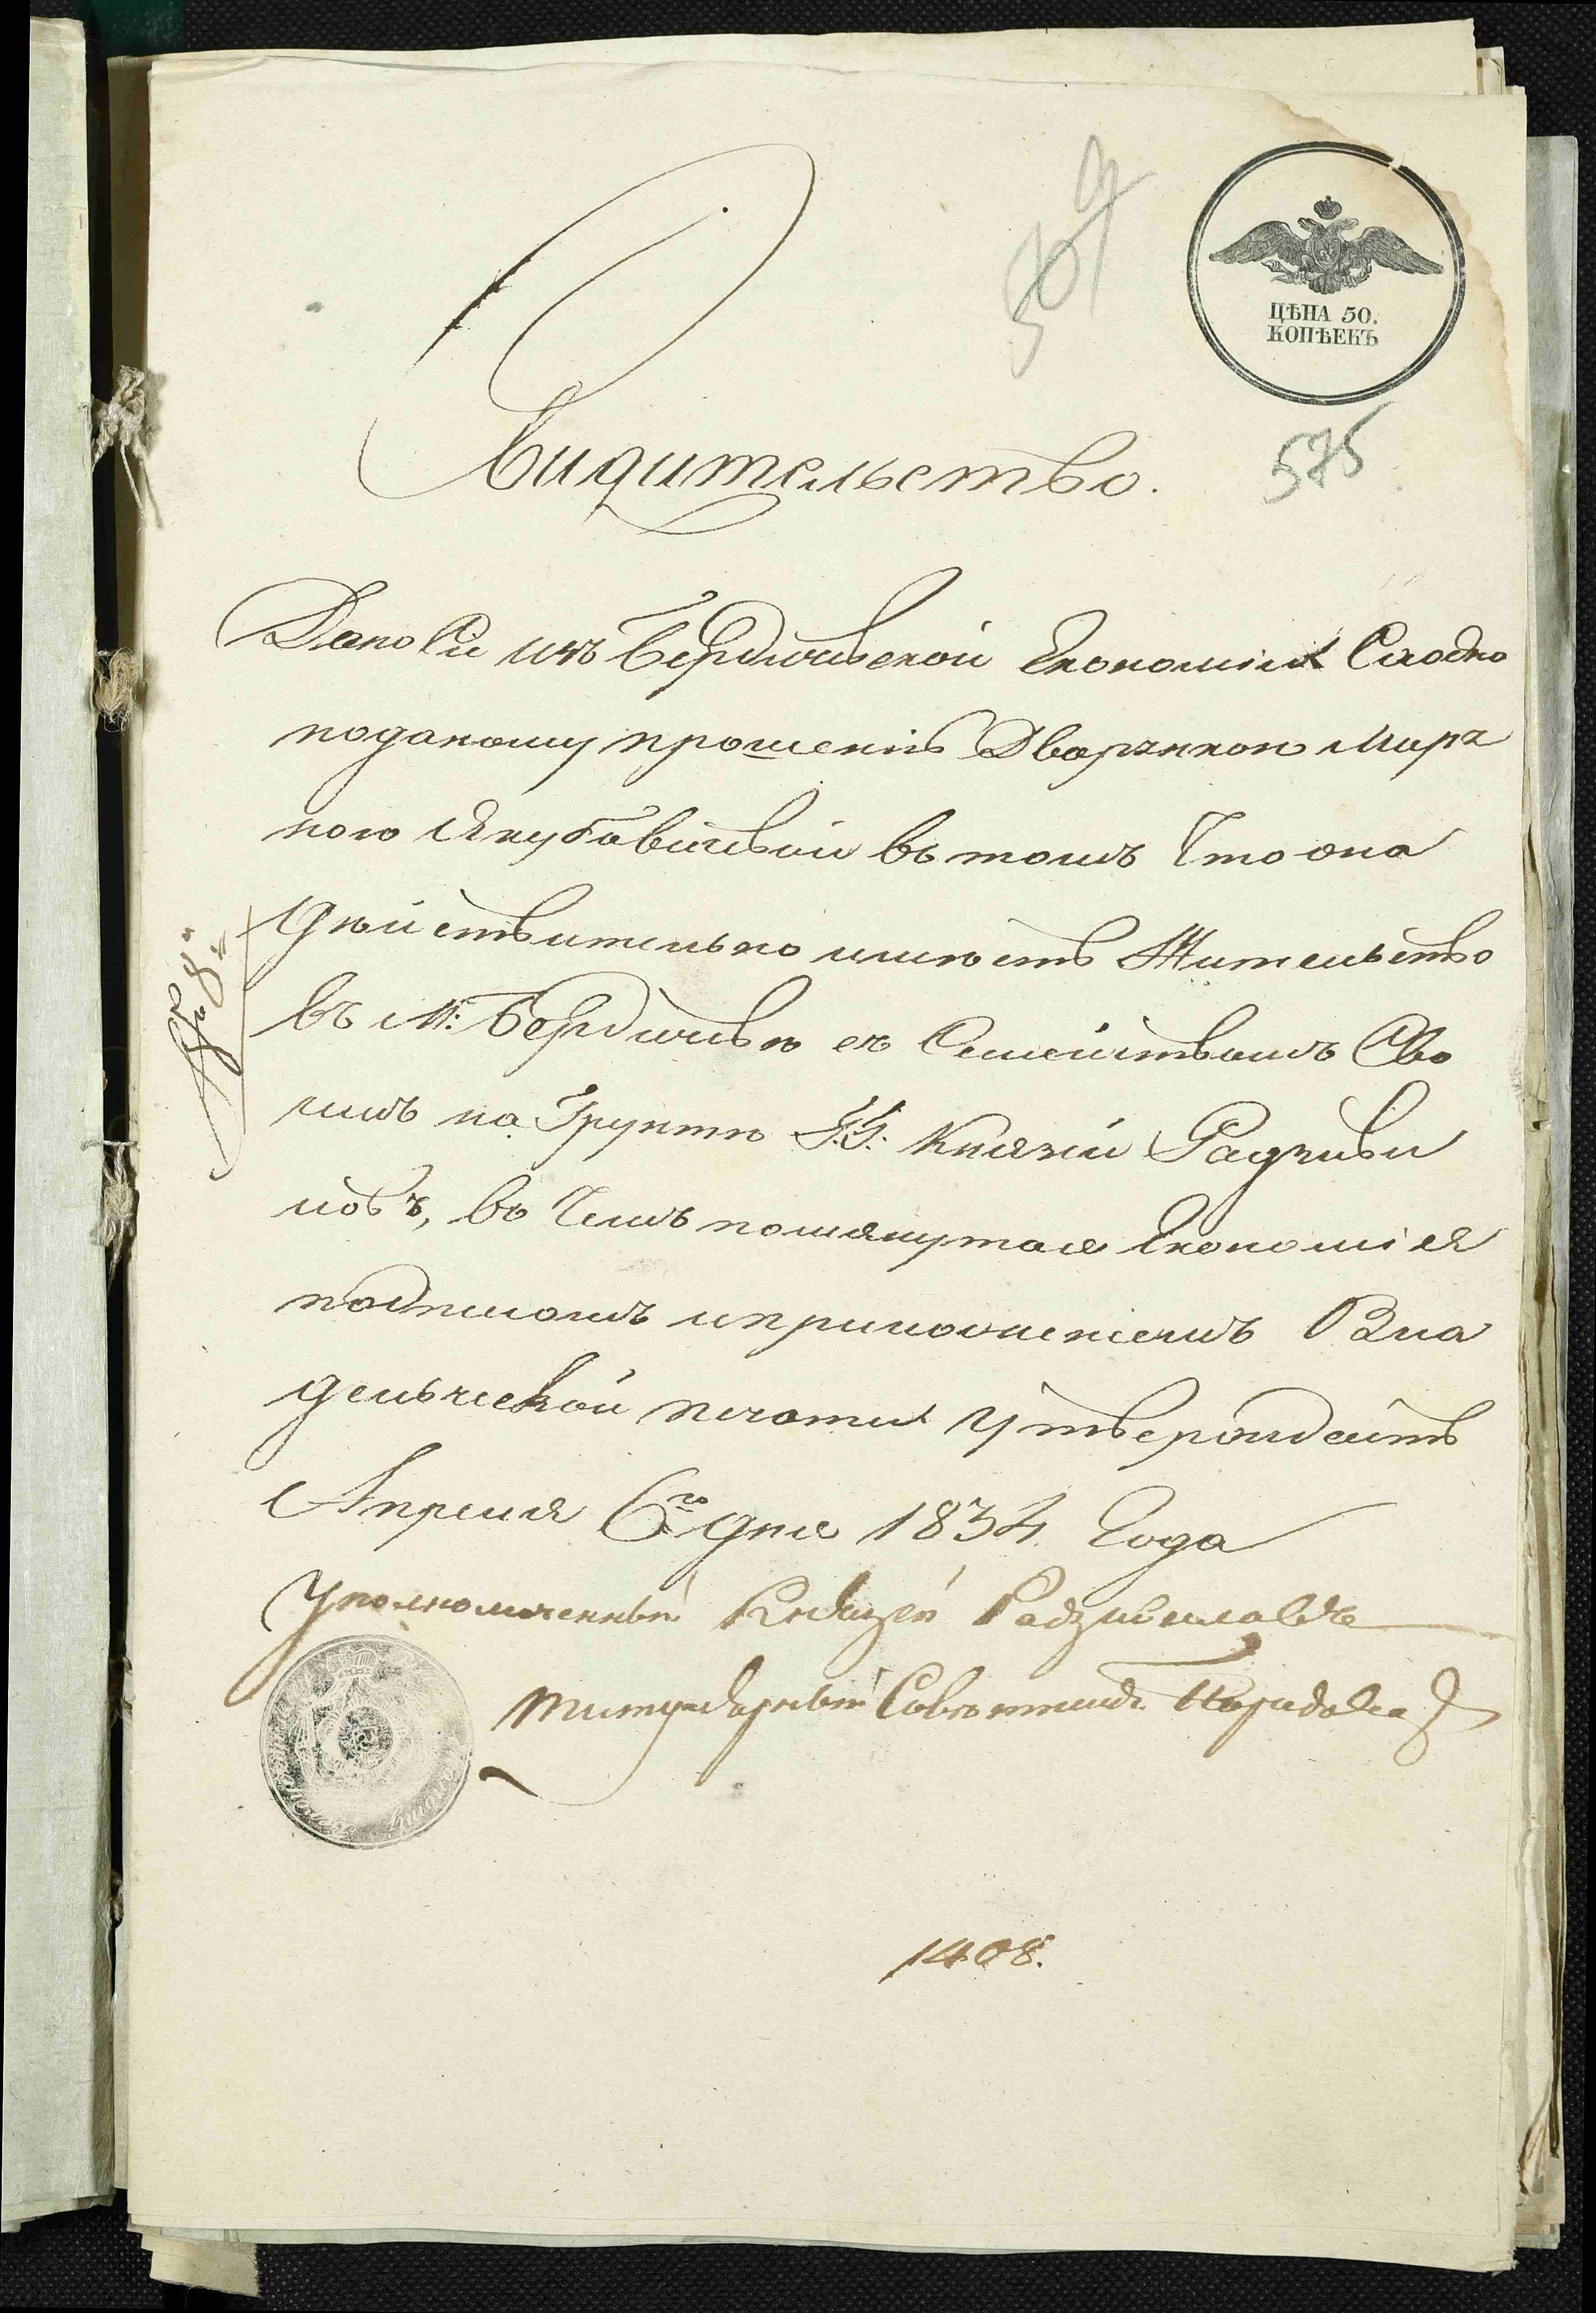 ЦѢНА 50.
КОПѢЕКЪ
575
Свидительство.
Дано Сіе изъ Бердичевской Економіи Сходно
поданому прошенію Дворянкою Мары
ною Якубовичевой въ томъ Что она
дѣйствительно имѣетъ Жительство
въ М: Бердичевѣ съ Семействомъ Сво
имъ на Грунтѣ Г.Г. Князей Радзиви
ловъ, въ Чемъ помянутая Економія
подписомъ и приложеніемъ Вла
дельческой печати Утверждаетъ
Апреля 6го дня 1834. Года
Уполномоченный Князей Радзивиловъ
титулярный Совѣтникъ
1408.